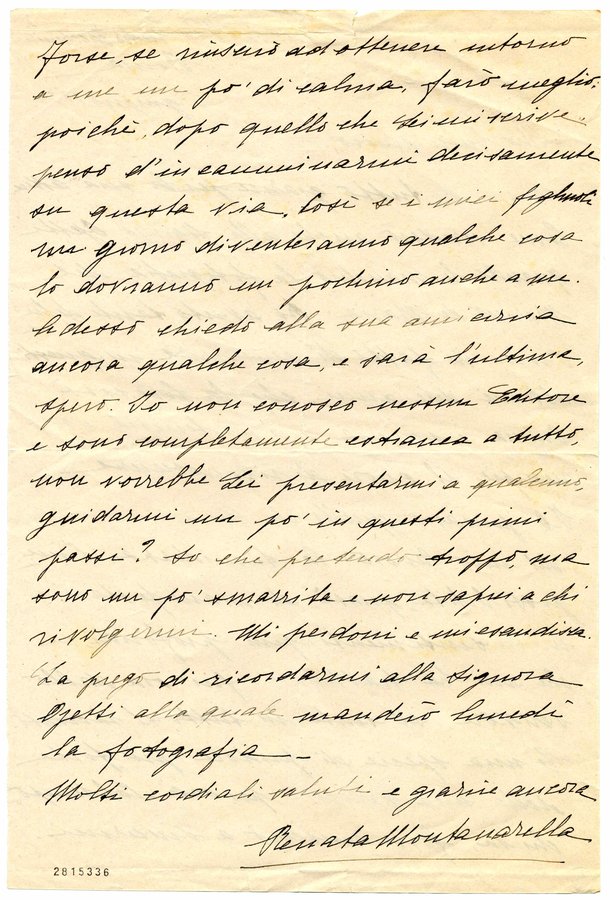 Forse, se riuscirò ad ottenere intorno
a me un po' di calma, farò meglio;
poichè, dopo quello che Lei mi scrive,
penso d'incamminarmi decisamente
su questa via. Così se i miei figliuoli
un giorno diventeranno qualche cosa
lo dovranno un pochino anche a me.
Adesso chiedo alla sua amicizia
ancora qualche cosa, e sarà l'ultima,
spero. Io non conosco nessun Editore
e sono completamente estranea a tutto,
non vorrebbe Lei presentarmi a qualcuno,
guidarmi un po' in questi primi
passi? So che pretendo troppo, ma
sono un po' smarrita e non saprei a chi
rivolgermi. Mi perdoni e mi esaudisca.
La prego di ricordarmi alla Signora
Ojetti alla quale manderò lunedì
la fotografia –
Molti cordiali saluti e grazie ancora
Renata Montanarella
2815336